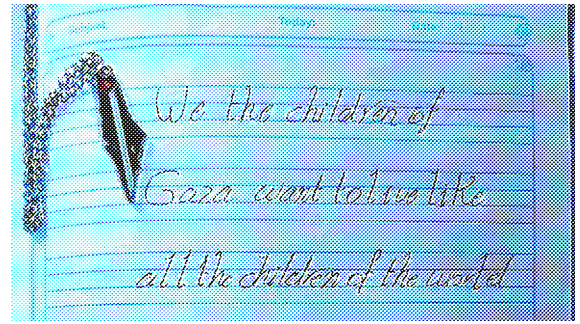 Today:
We the children of
Gaza want to live like
all the children of the world